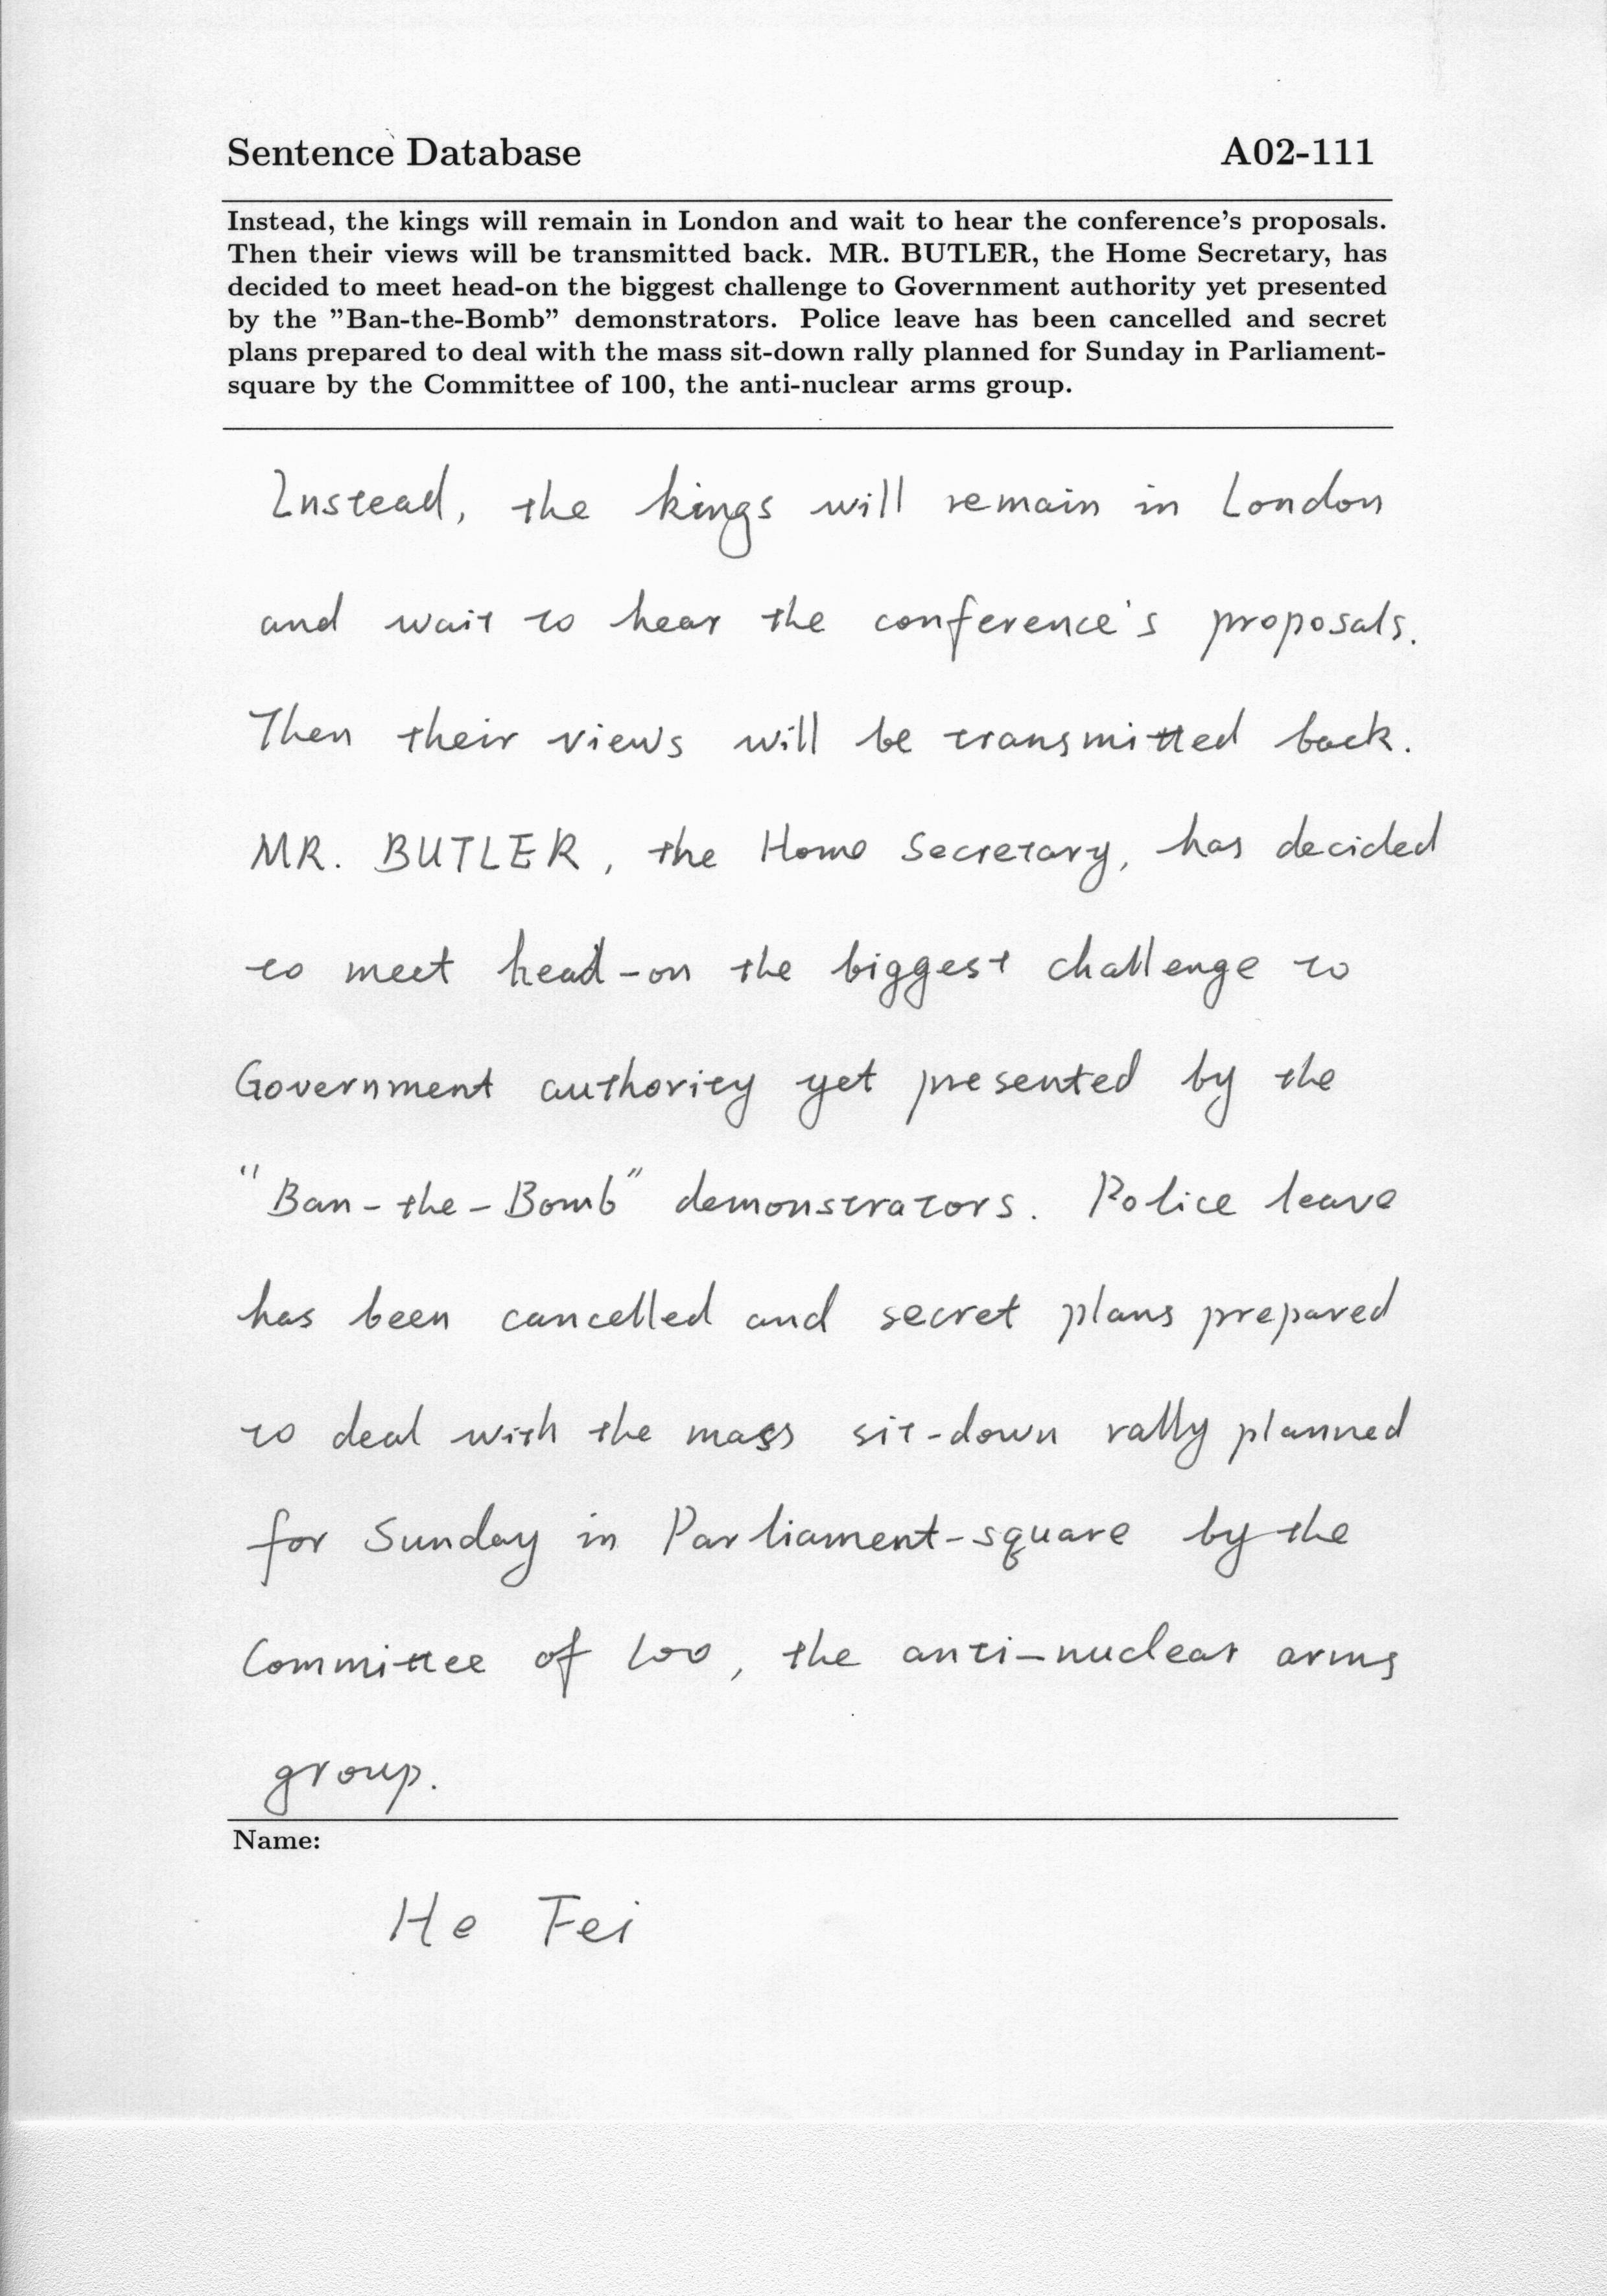 Sentence Database A02-111
Instead, the kings will remain in London and wait to hear the conference's proposals.
Then their views will be transmitted back. MR. BUTLER, the Home Secretary, has
decided to meet head-on the biggest challenge to Government authority yet presented
by the "Ban-the-Bomb" demonstrators. Police leave has been cancelled and secret
plans prepared to deal with the mass sit-down rally planned for Sunday in Parliament-
square by the Committee of 100, the anti-nuclear arms group.
Instead, the kings will remain in London
and wait to hear the conference's proposals.
Then their views will be transmitted back.
MR. BUTLER, the Home Secretary, has decided
to meet head-on the biggest challenge to
Government authority yet presented by the
"Ban-the-Bomb" demonstrators. Police leave
has been cancelled and secret plans prepared
to deal with the mass sit-down rally planned
for Sunday in Parliament-square by the
Committee of 100, the anti-nuclear arms
group.
Name:
He Fei